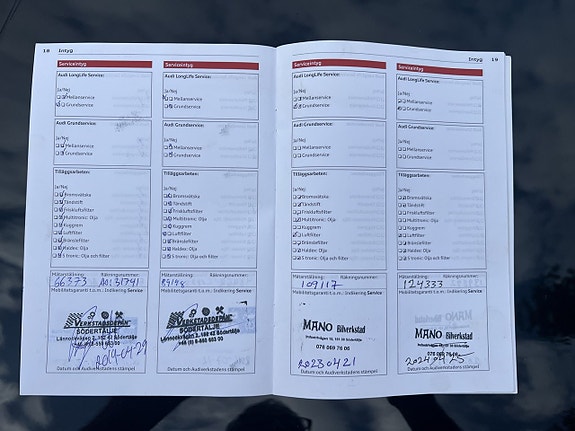 18 Intyg
Serviceintyg
Audi LongLife Service:
Ja/Nej
Mellanservice
Grundservice
Audi Grundservice:
Ja/Nej
Mellanservice
Grundservice
Tilläggsarbeten:
Ja/Nej
Bromsvätska
Tändstift
Friskluftsfilter
Multitronic: Olja
Kuggrem
Luftfilter
Bränslefilter
Haldex: Olja
S tronic: Olja och filter
Mätarställning: Räkningsnummer:
66373 A0131741
Mobilitetsgaranti t.o.m.: Indikering Service
VERKSTADSDEPÅN
SÖDERTÄLJE
2019-04-29
Datum och Audiverkstadens stämpel
Serviceintyg
Audi LongLife Service:
Ja/Nej
Mellanservice
Grundservice
Audi Grundservice:
Ja/Nej
Mellanservice
Grundservice
Tilläggsarbeten:
Ja/Nej
Bromsvätska
Tändstift
Friskluftsfilter
Multitronic: Olja
Kuggrem
Luftfilter
Bränslefilter
Haldex: Olja
S tronic: Olja och filter
Mätarställning: Räkningsnummer:
Mobilitetsgaranti t.o.m.: Indikering Service
VERKSTADSDEPÅN
SÖDERTÄLJE
Datum och Audiverkstadens stämpel
Intyg 19
Serviceintyg
Audi LongLife Service:
Ja/Nej
Mellanservice
Grundservice
Audi Grundservice:
Ja/Nej
Mellanservice
Grundservice
Tilläggsarbeten:
Ja/Nej
Bromsvätska
Tändstift
Friskluftsfilter
Multitronic: Olja
Kuggrem
Luftfilter
Bränslefilter
Haldex: Olja
S tronic: Olja och filter
Mätarställning: Räkningsnummer:
109117
Mobilitetsgaranti t.o.m.: Indikering Service
MANO Bilverkstad
076 069 76 06
20230421
Datum och Audiverkstadens stämpel
Serviceintyg
Audi LongLife Service:
Ja/Nej
Mellanservice
Grundservice
Audi Grundservice:
Ja/Nej
Mellanservice
Grundservice
Tilläggsarbeten:
Ja/Nej
Bromsvätska
Tändstift
Friskluftsfilter
Multitronic: Olja
Kuggrem
Luftfilter
Bränslefilter
Haldex: Olja
S tronic: Olja och filter
Mätarställning: Räkningsnummer:
124333
Mobilitetsgaranti t.o.m.: Indikering Service
MANO Bilverkstad
076 069 76 06
20240425
Datum och Audiverkstadens stämpel